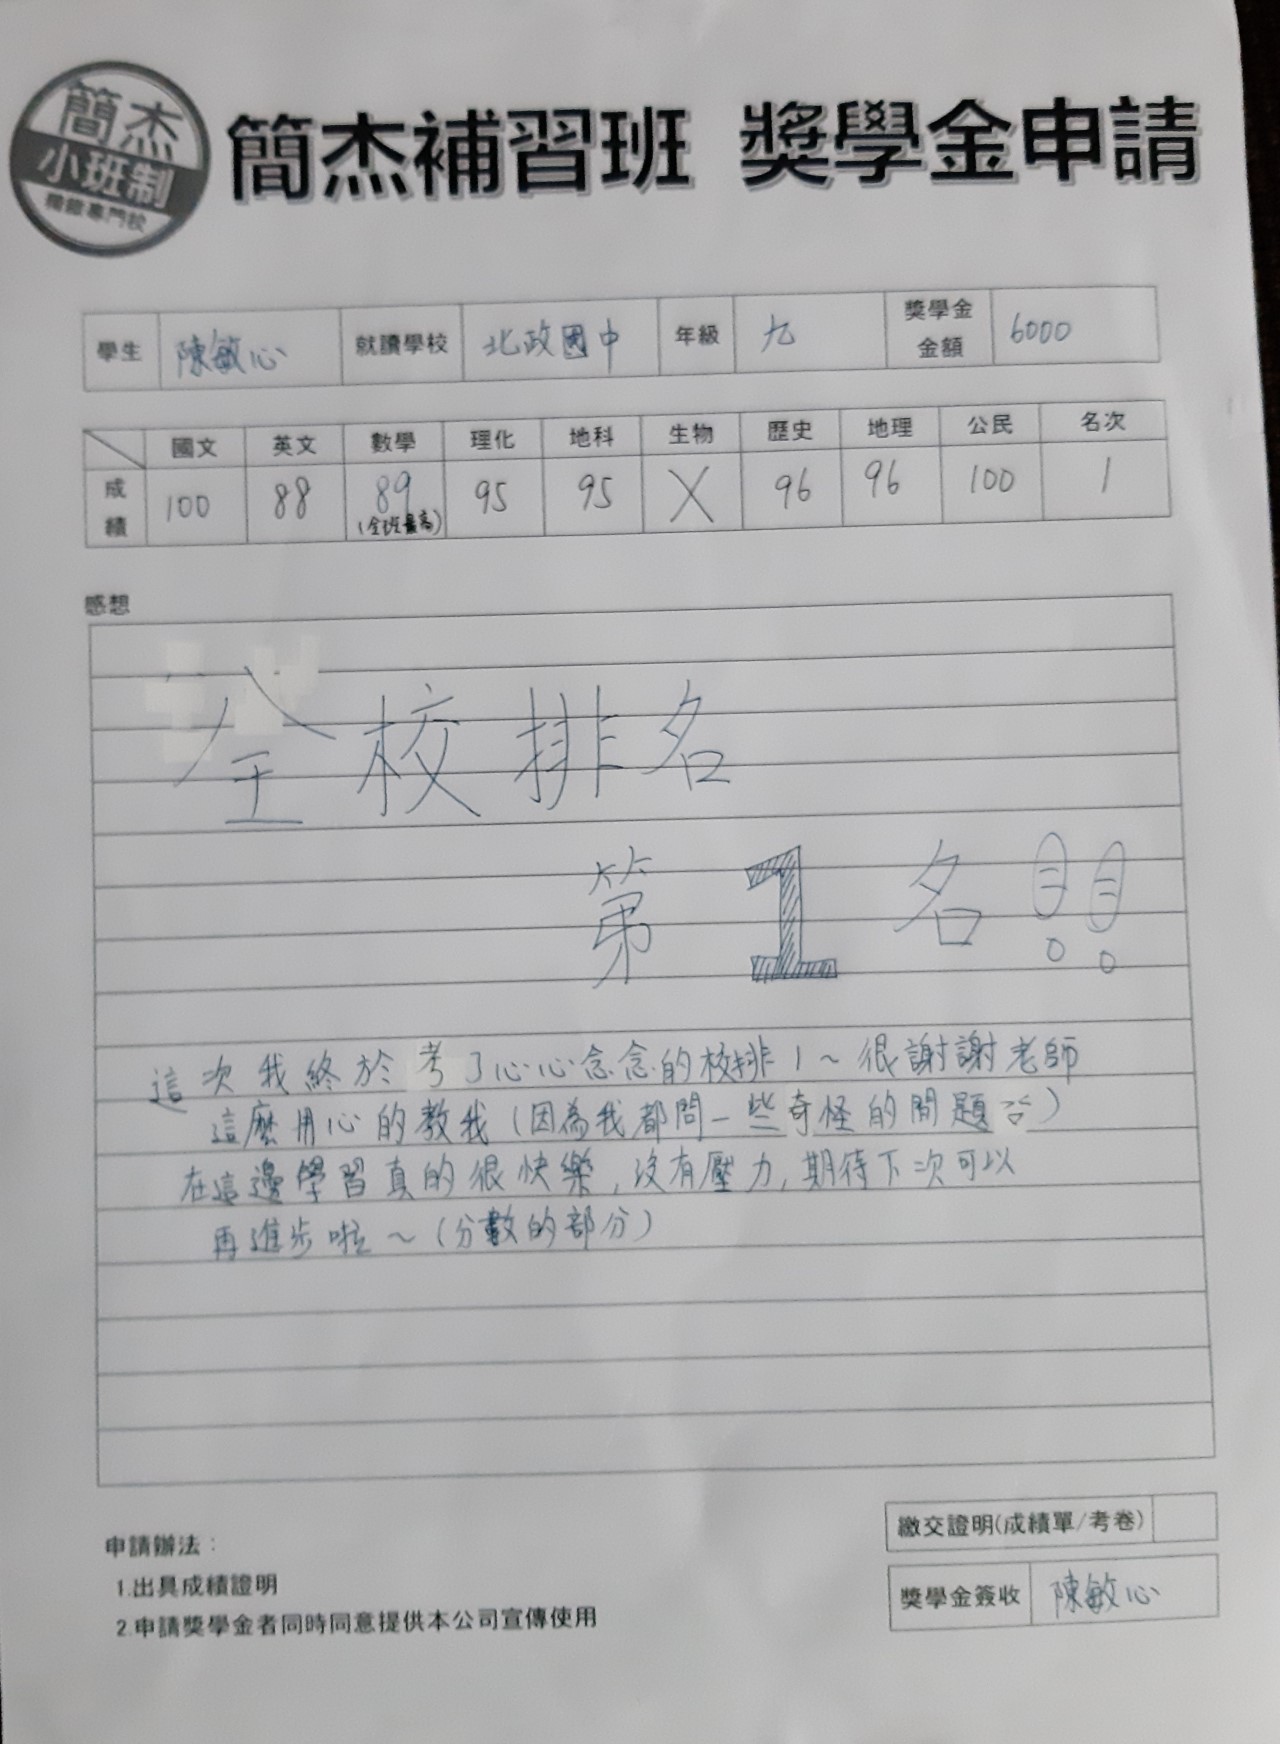 簡杰
小班制
簡杰補習班 獎學金申請
學生 陳敏心 就讀學校 北政國中 年級 九 獎學金金額 6000
國文 英文 數學 理化 地科 生物 歷史 地理 公民 名次
成績 100 88 89 (全班最高) 95 95 X 96 96 100 1
感想
全校排名
第1名!!
這次我終於考了心心念念的校排1~很謝謝老師
這麼用心的教我(因為我都問一些奇怪的問題)
在這邊學習真的很快樂,沒有壓力,期待下次可以
再進步啦~(分數的部分)
繳交證明(成績單/考卷)
獎學金簽收 陳敏心
申請辦法:
1.出具成績證明
2.申請獎學金者同時同意提供本公司宣傳使用